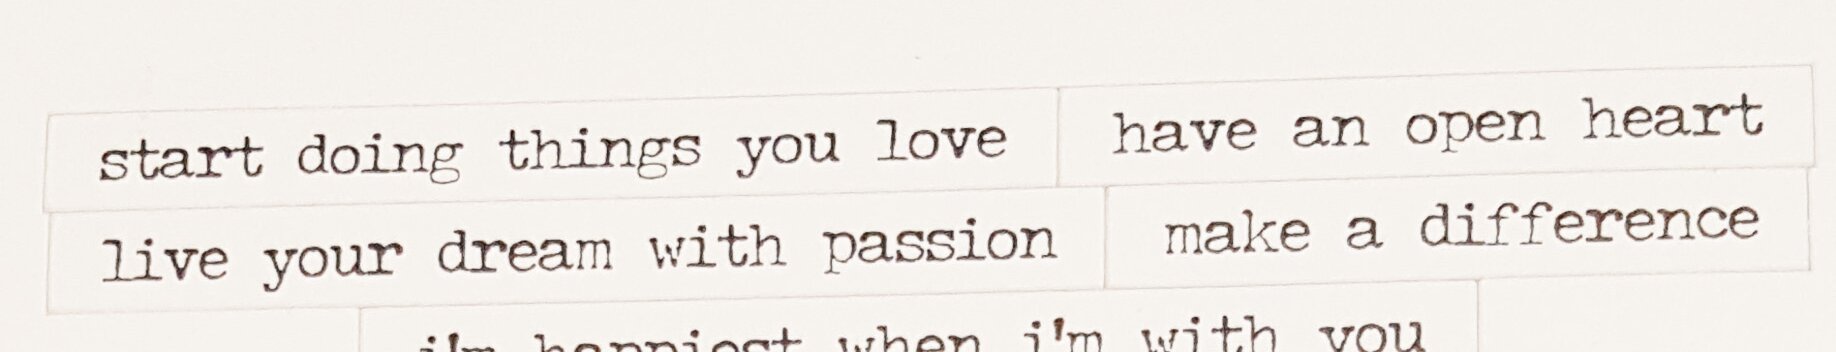 start doing things you love have an open heart
live your dream with passion make a difference
i'm happiest when i'm with you